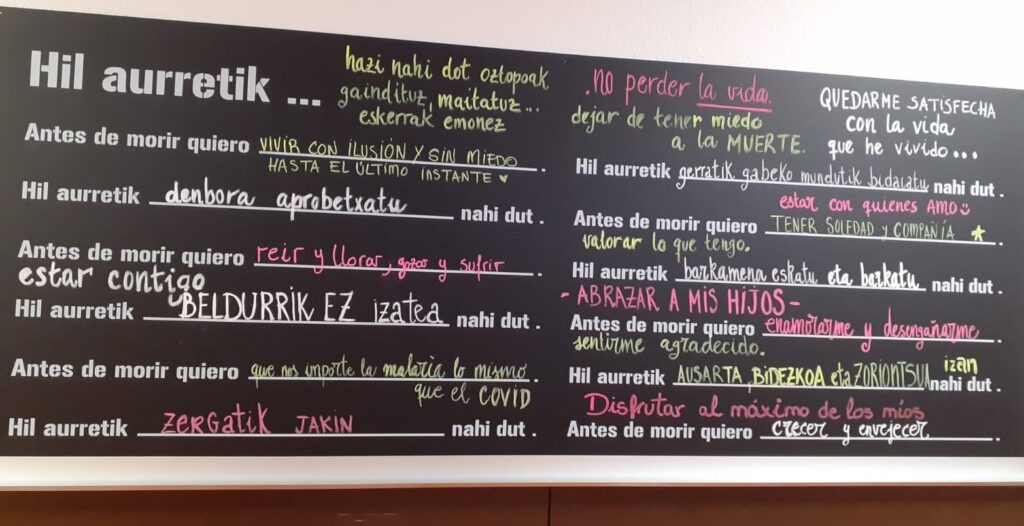 Hil aurretik ...
hazi nahi dot oztopoak
gaindituz, maitatuz...
eskerrak emonez
Antes de morir quiero VIVIR CON ILUSIÓN Y SIN MIEDO
HASTA EL ÚLTIMO INSTANTE ♥
Hil aurretik denbora aprobetxatu nahi dut .
Antes de morir quiero reir y llorar, gozar y sufrir .
estar contigo
Hil aurretik BELDURRIK EZ izatea nahi dut .
Antes de morir quiero que nos importe la malaria lo mismo .
que el COVID
Hil aurretik zergatik JAKIN nahi dut .
.no perder la vida.
dejar de tener miedo
a la MUERTE.
QUEDARME SATISFECHA
CON LA VIDA
que he vivido...
Hil aurretik gerratik gabeko mundutik bidaiatu nahi dut .
estar con quienes AMO
Antes de morir quiero TENER SOLEDAD Y COMPAÑÍA .
valorar lo que tengo.
Hil aurretik barkamena eskatu eta barkatu nahi dut .
- ABRAZAR A MIS HIJOS -
Antes de morir quiero enamorarme y desengañarme .
sentirme agradecido.
Hil aurretik AUSARTA, BIDEZKOA eta ZORIONTSUA izan nahi dut .
Disfrutar al máximo de los míos
Antes de morir quiero crecer y envejecer .